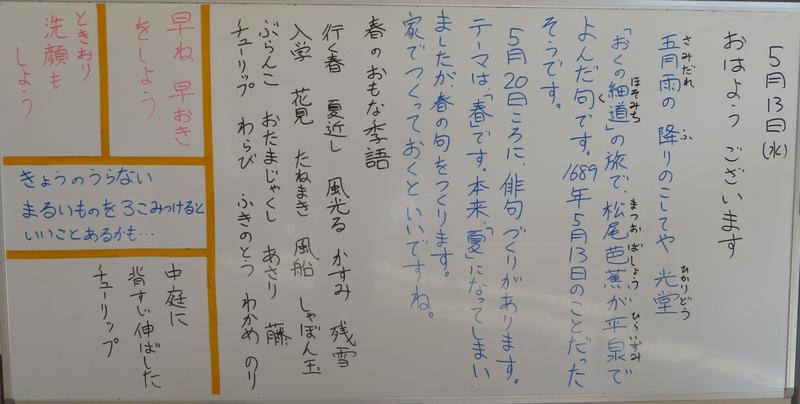 5月13日(水)
おはよう ございます
五月雨の 降りのこしてや 光堂
さみだれ ふ ひかりどう
「おくの細道」の旅で、松尾芭蕉が平泉で
ほそみち まつおばしょう ひらいずみ
よんだ句です。1689年5月13日のことだった
く
そうです。
5月20日ころに、俳句づくりがあります。
テーマは、「春」です。本来、「夏」になってしまい
ましたが、春の句をつくります。
家でつくっておくといいですね。
春のおもな季語
行く春 夏近し 風光る かすみ 残雪
入学 花見 たねまき 風船 しゃぼん玉
ぶらんこ おたまじゃくし あさり 藤
チューリップ わらび ふきのとう わかめ のり
早ね 早おき
をしよう
ときおり
洗顔も
しよう
きょうのうらない
まるいものを3こみつけると
いいことあるかも…
中庭に
背すじ伸ばした
チューリップ